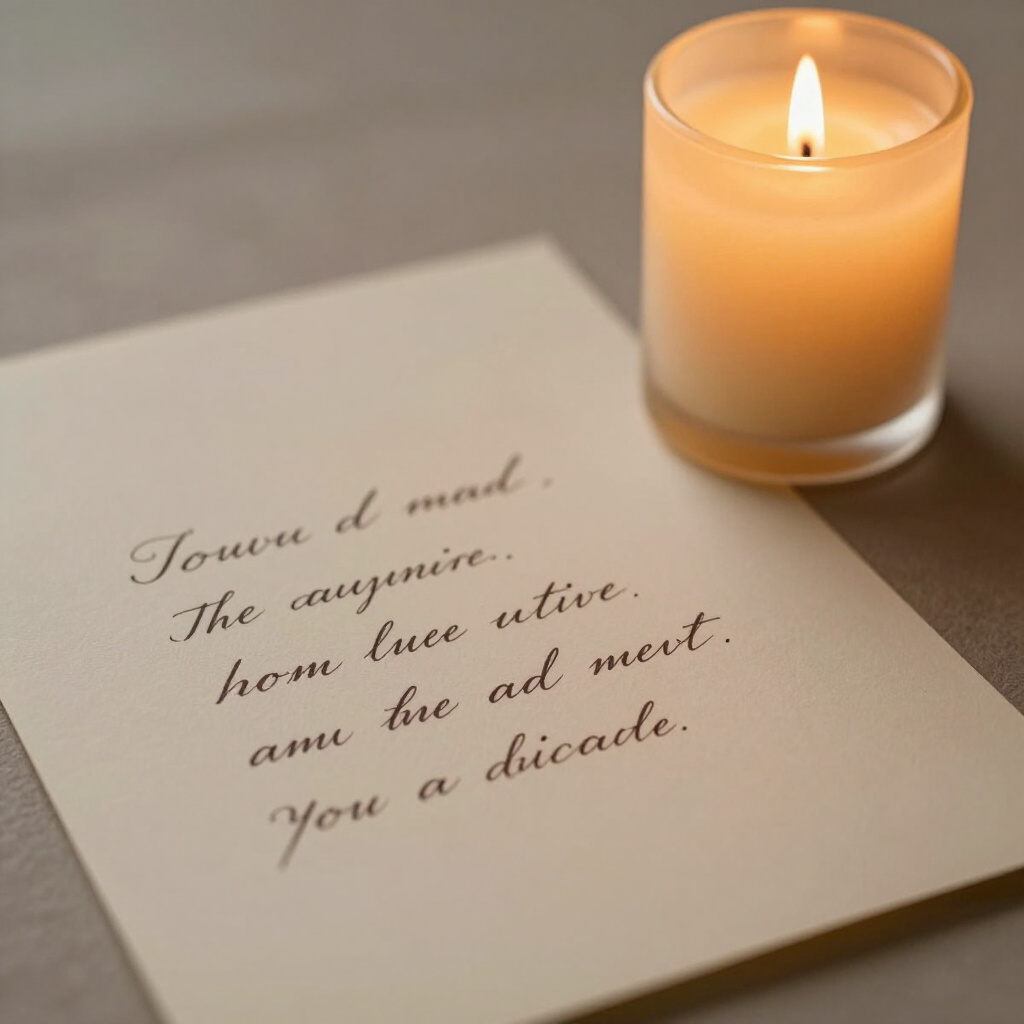 Touvu d mad.
The auymire..
hom luee utive.
amu hne ad mevt.
You a dicade.